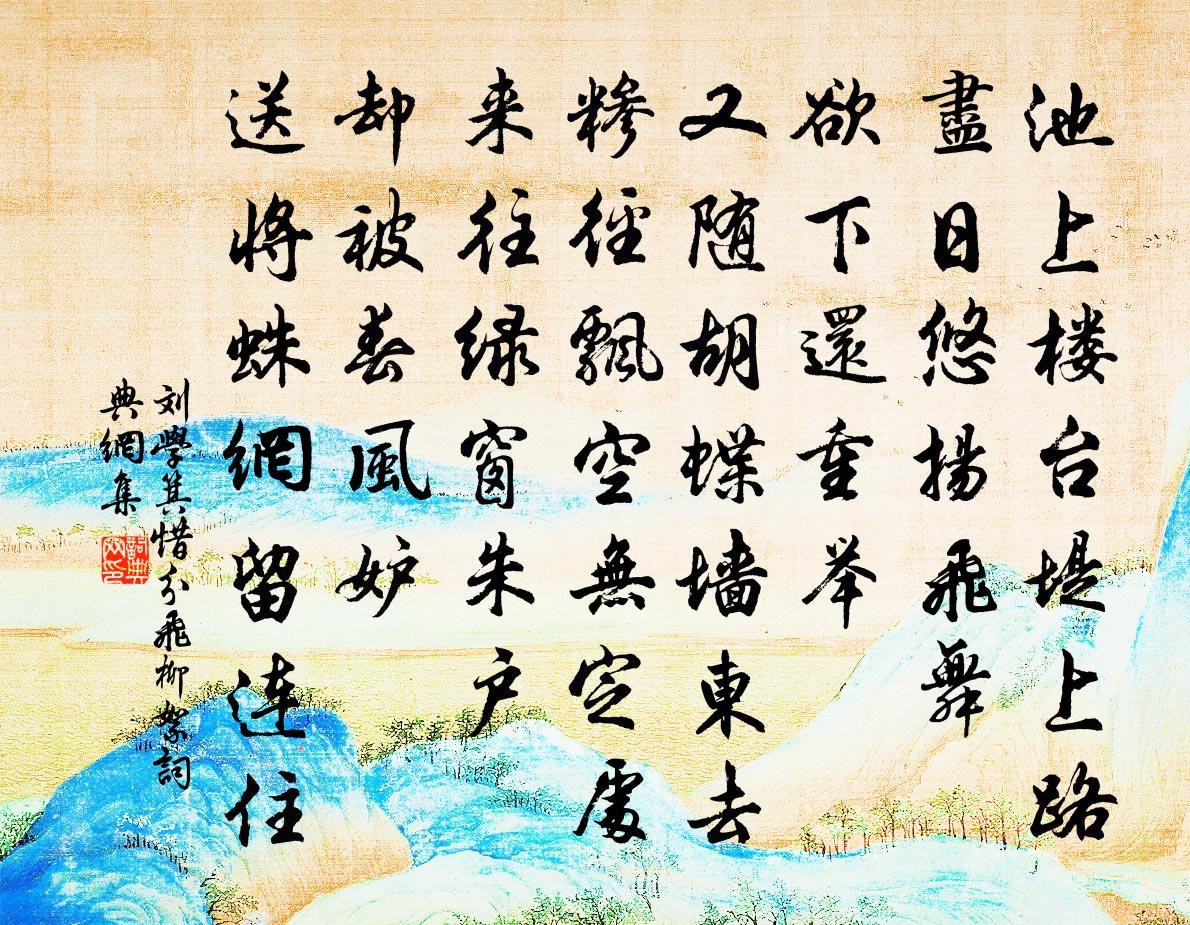 池上楼台堤上路
盡日悠揚飛舞
欲下還重举
又随胡蝶墙東去
糝徑飄空無定處
来往绿窗朱户
却被春風妒
送将蛛網留連住
刘學箕惜分飛柳絮詞
典網集
詞典網印